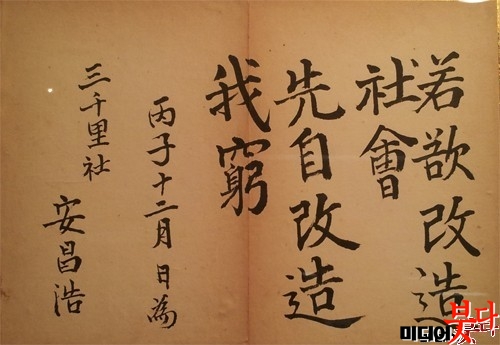 若欲改造
社會
先自改造
我窮
丙子十二月 日為
三千里社
安昌浩
미디어붓다